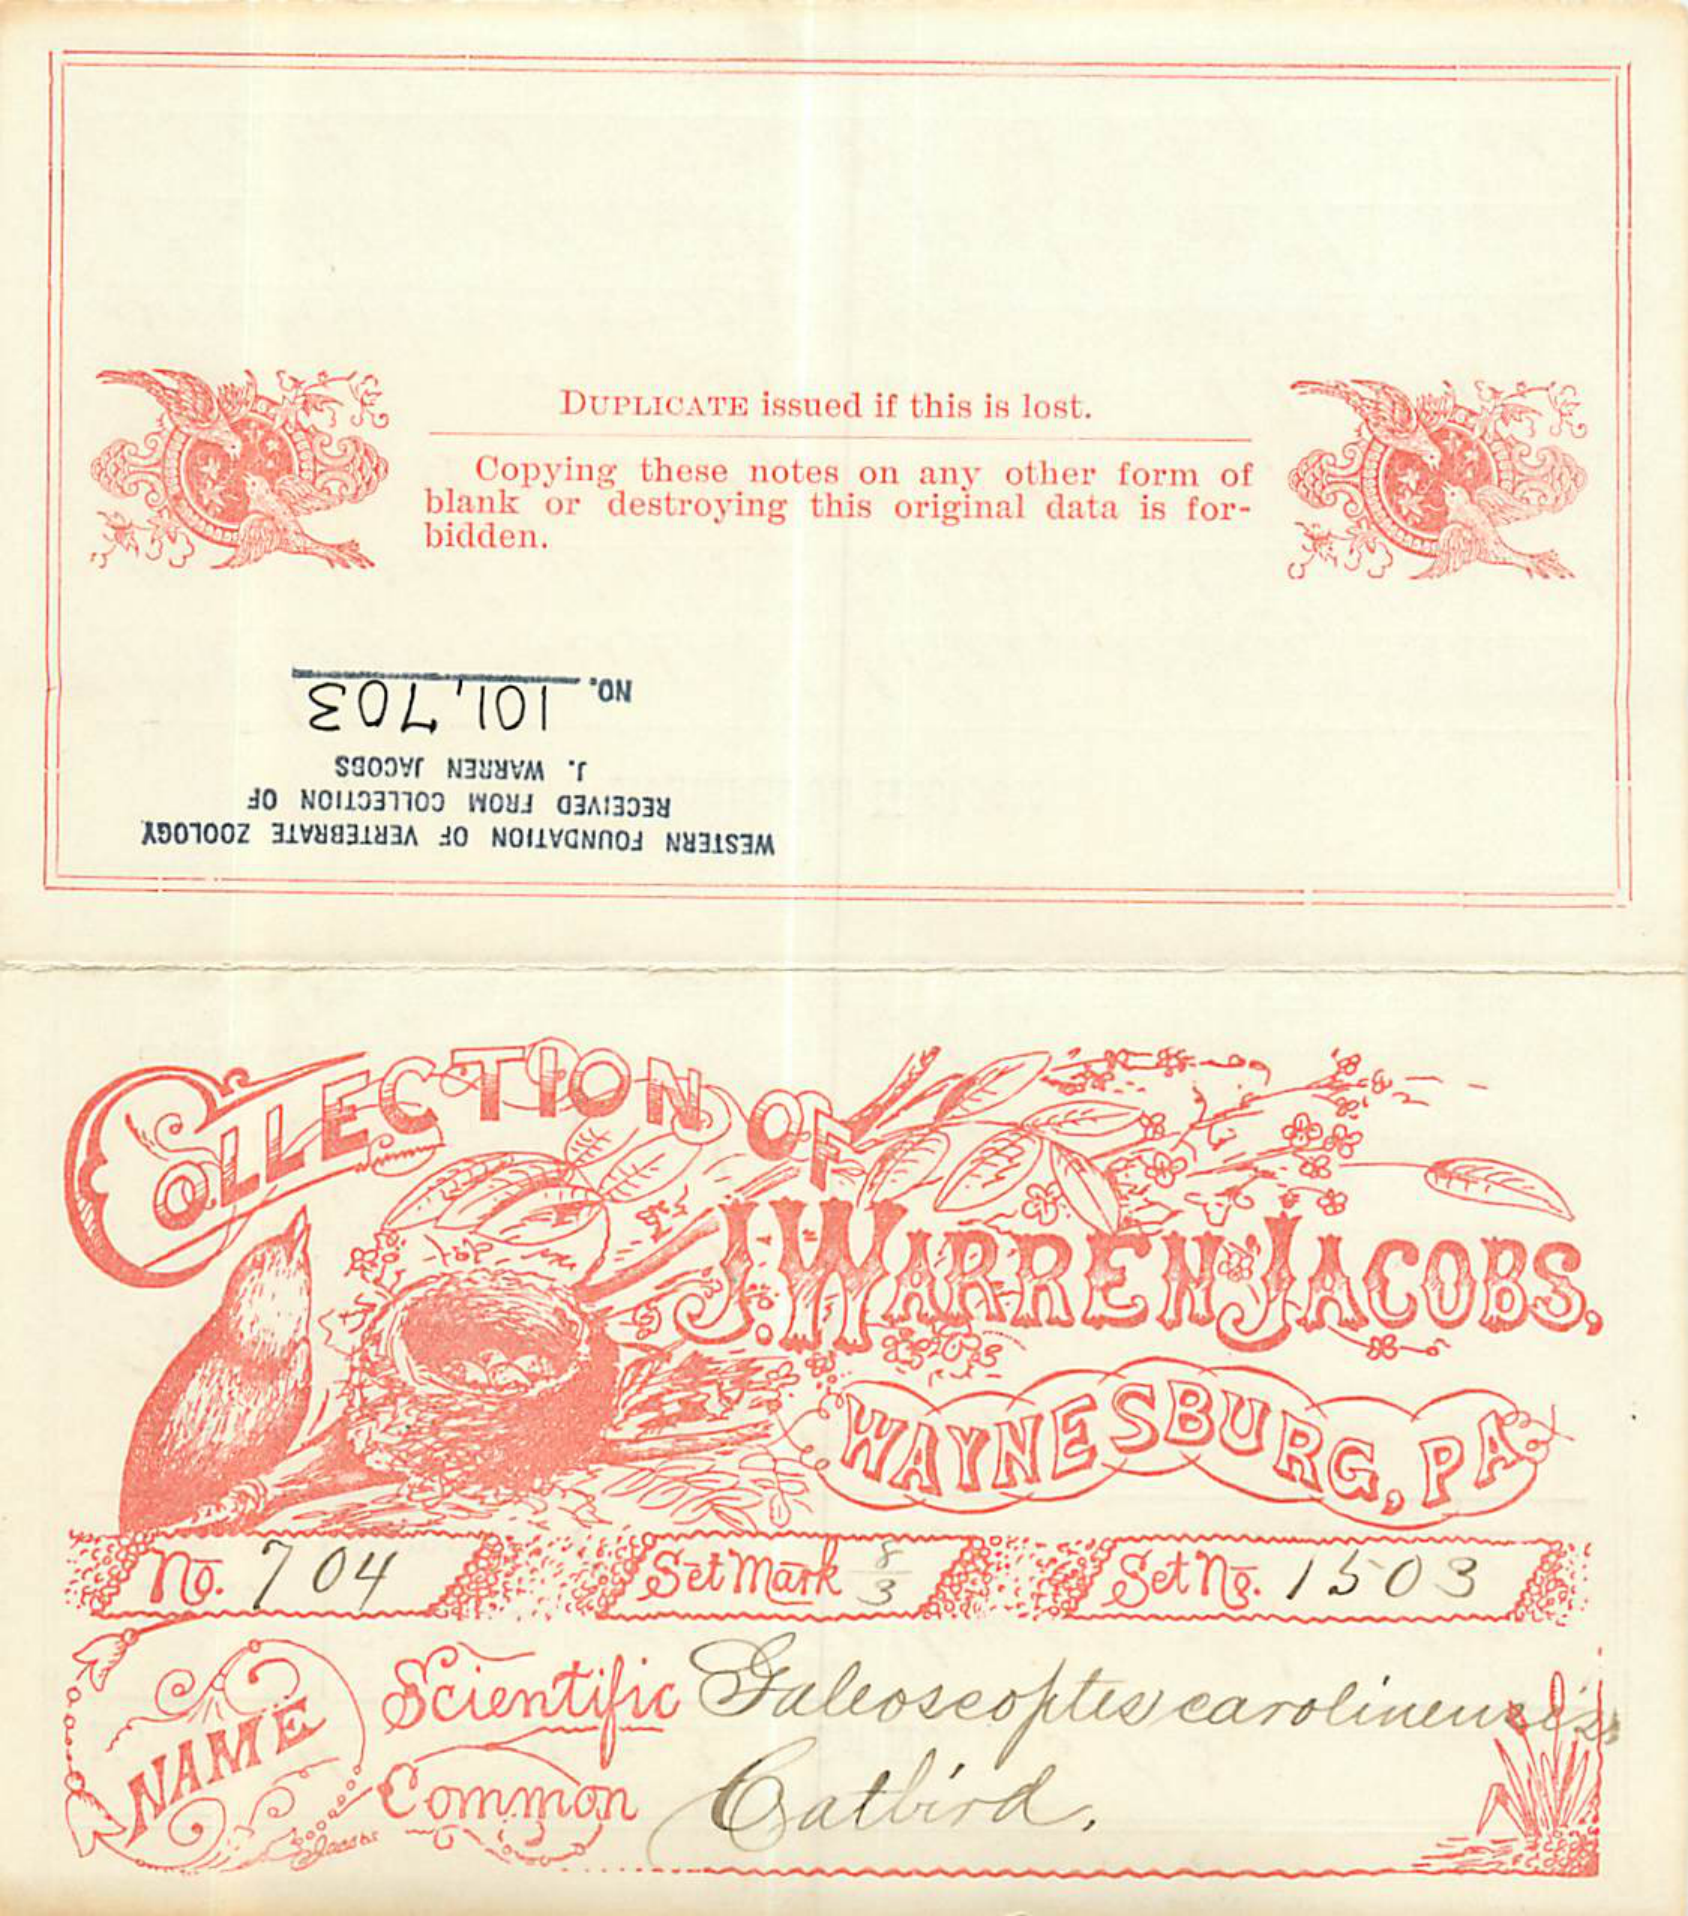 DUPLICATE issued if this is lost.
Copying these notes on any other form of
blank or destroying this original data is for-
bidden.
WESTERN FOUNDATION OF VERTEBRATE ZOOLOGY
RECEIVED FROM COLLECTION OF
J. WARREN JACOBS
NO. 101,703
COLLECTION OF
J. WARREN JACOBS,
WAYNESBURG, PA
No. 704 Set Mark 8/3 Set No. 1503
NAME
Scientific Galeoscoptes carolinensis
Common Catbird.
Jacobs